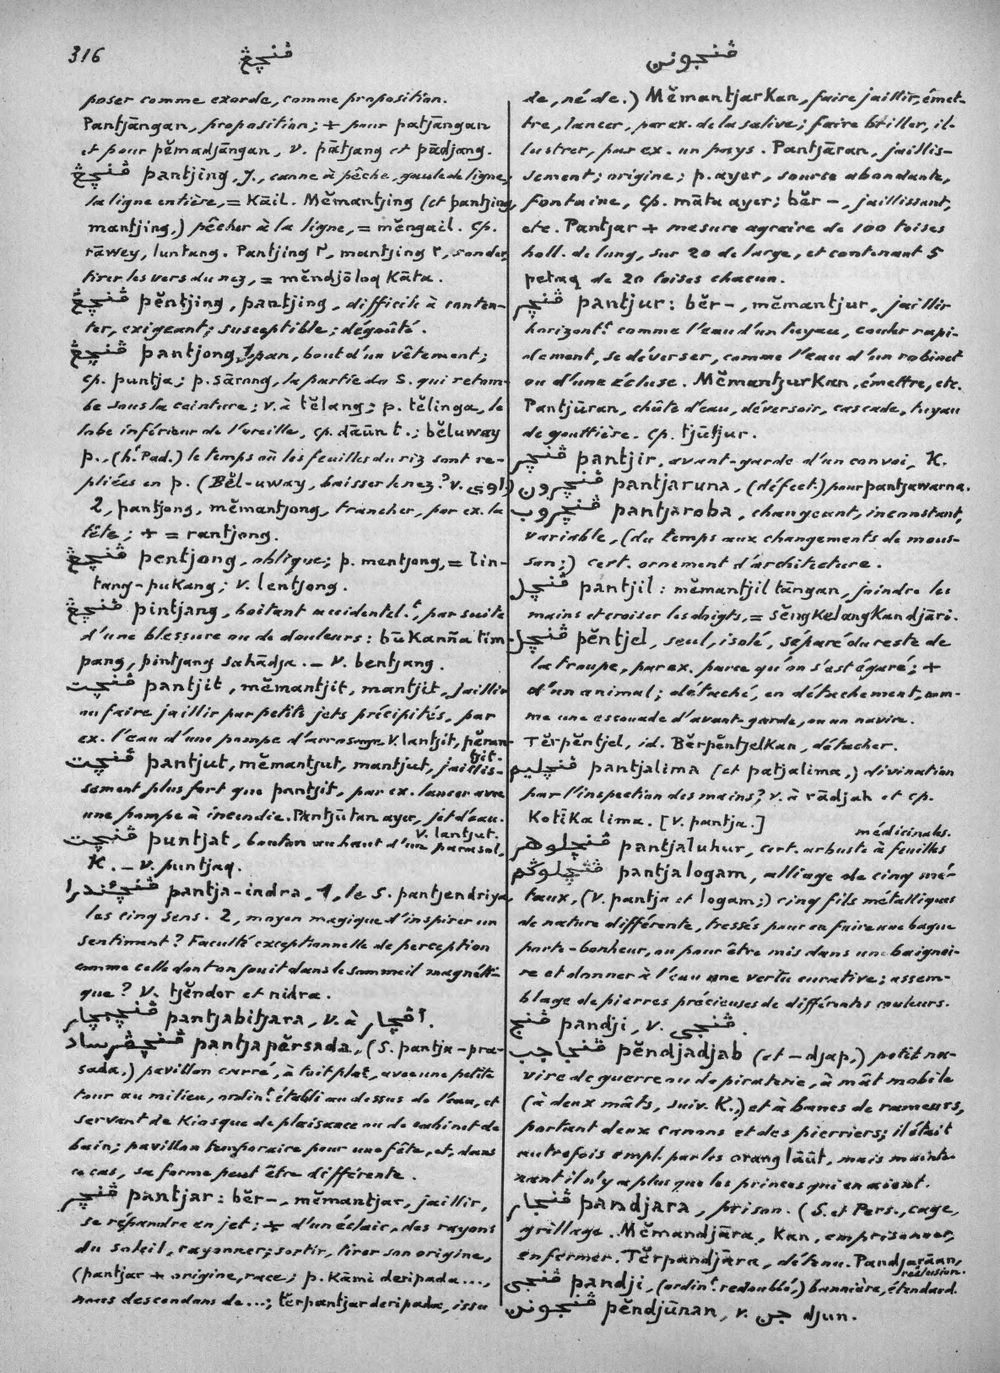 316
ڤنچڠ
ڤنجونن
poser comme exorde, comme proposition.
Pantjāngan, proposition; + pour patjāngan
et pour pĕmadjāngan, v. pātjang et pādjang.
ڤنچڠ pantjing, J., canne à pêche, gaule de ligne,
la ligne entière, = Kāil. Mĕmantjing (et pantjing,
mantjing,) pêcher à la ligne, = mĕngail. Cp.
rāwey, luntang. Pantjing r, mantjing r, sonder,
tirer les vers du nez, = mĕndjōloq Kāta.
ڤنچڠ pĕntjing, pantjing, difficile à conten-
ter, exigeant; susceptible; dégoûté.
ڤنچڠ pantjong, pan, bout d'un vêtement;
cp. puntja; p. sārong, la partie du s. qui retom-
be sous la ceinture; v. à tĕlang; p. tĕlinga, le
lobe inférieur de l'oreille, cp. dāūn t.; bĕluway
p., (h. Pad.) le temps où les feuilles du riz sont re-
pliées en p. (Bĕl-uway, baisser le nez? v. اوي)
2, pantjong, mĕmantjong, trancher, par ex. la
tête; + = rantjong.
ڤنچڠ pentjong, oblique; p. mentjong, = lin-
tang-puKang; v. lentjong.
ڤنچڠ pintjang, boitant accidentel.t, par suite
d'une blessure ou de douleurs: būKanña tim-
pang, pintjang sahādja. – V. bentjang.
ڤنچت pantjit, mĕmantjit, mantjit, jaillir
ou faire jaillir par petits jets précipités, par
ex. l'eau d'une pompe d'arrosage. V. lantjit, pĕran-
tjit.
ڤنچت pantjut, mĕmantjut, mantjut, jaillis-
sement plus fort que pantjit, par ex. lancer avec
une pompe à incendie. Pantjūtan ayer, jet d'eau.
V. lantjut.
ڤنچت puntjat, bouton au haut d'un parasol,
K. – v. puntjaq.
ڤنچئندرا pantja-indra, 1, le S. pantjendriya,
les cinq sens. 2, moyen magique d'inspirer un
sentiment? Faculté exceptionnelle de perception
comme celle dont on jouit dans le sommeil magnéti-
que? V. tjĕndor et nidra.
ڤنچبچار pantjabitjara, v. à اڤچار.
ڤنچڤرساد pantjapĕrsada, (S. pantja-pra-
sada,) pavillon carré, à toit plat, avec une petite
tour au milieu, ordin.t établi au dessus de l'eau, et
servant de Kiosque de plaisance ou de cabinet de
bain; pavillon temporaire pour une fête, et, dans
ce cas, sa forme peut être différente.
ڤنچر pantjar: bĕr-, mĕmantjar, jaillir,
se répandre en jet; + d'un éclair, des rayons
du soleil, rayonner; sortir, tirer son origine,
(pantjar + origine, race; p. Kāmi deripada...,
nous descendons de...; tĕrpantjar deripada, issu
de, né de.) MĕmantjarKan, faire jaillir, émet-
tre, lancer, par ex. de la salive; faire briller, il-
lustrer, par ex. un pays. Pantjāran, jaillis-
sement; origine; p. ayer, source abondante,
fontaine, Cp. māta ayer; bĕr-, jaillissant,
etc. Pantjar + mesure agraire de 100 toises
holl. de long, sur 20 de large, et contenant 5
petaq de 20 toises chacun.
ڤنچر pantjur: bĕr-, mĕmantjur, jaillir
horizont.t comme l'eau d'un tuyau, couler rapi-
dement, se déverser, comme l'eau d'un robinet
ou d'une écluse. MĕmantjurKan, émettre, etc.
Pantjūran, chûte d'eau, déversoir, cascade, tuyau
de gouttière. Cp. tjūtjur.
ڤنچر pantjir, avant-garde d'un convoi, K.
ڤنچرون pantjaruna, (défect.) pour pantjawarna.
ڤنچروب pantjaroba, changeant, inconstant,
variable, (du temps aux changements de mous-
son;) cert. ornement d'architecture.
ڤنچل pantjil: mĕmantjil tāngan, joindre les
mains et croiser les doigts, = sĕngKelangKan djāri.
ڤنچل pĕntjel, seul, isolé, séparé du reste de
la troupe, par ex. parce qu'on s'est égaré; +
d'un animal; détaché, en détachement, com-
me une escouade d'avant-garde, ou un navire.
Tĕrpĕntjel, id. BĕrpĕntjelKan, détacher.
ڤنچليم pantjalima (et patjalima,) divination
par l'inspection des mains? v. à rādjah et cp.
KotiKa lima. [V. pantja.]
médicinales.
ڤنچلوهر pantjaluhur, cert. arbuste à feuilles
ڤنچلوڬم pantjalogam, alliage de cinq mé-
taux, (v. pantja et logam;) cinq fils métalliques
de nature différente, tressés pour en faire une bague
porte-bonheur, ou pour être mis dans une baignoi-
re et donner à l'eau une vertu curative; assem-
blage de pierres précieuses de différentes couleurs.
ڤنج pandji, v. ڤنجي.
ڤنجاجب pĕndjadjab (et –djap,) petit na-
vire de guerre ou de piraterie, à mât mobile
(à deux mâts, suiv. K.,) et à bancs de rameurs,
portant deux canons et des pierriers; il était
autrefois empl. par les orang lāūt, mais mainte-
nant il n'y a plus que les princes qui en aient.
ڤنجار pandjara, prison. (S. et Pers., cage,
grillage. Mĕmandjāra, Kan, emprisonner,
enfermer. Tĕrpandjāra, détenu. Pandjarāan,
réclusion.
ڤنجي pandji, (ordin.t redoublé,) bannière, étendard.
ڤنجونن pĕndjūnan, v. جن djun.